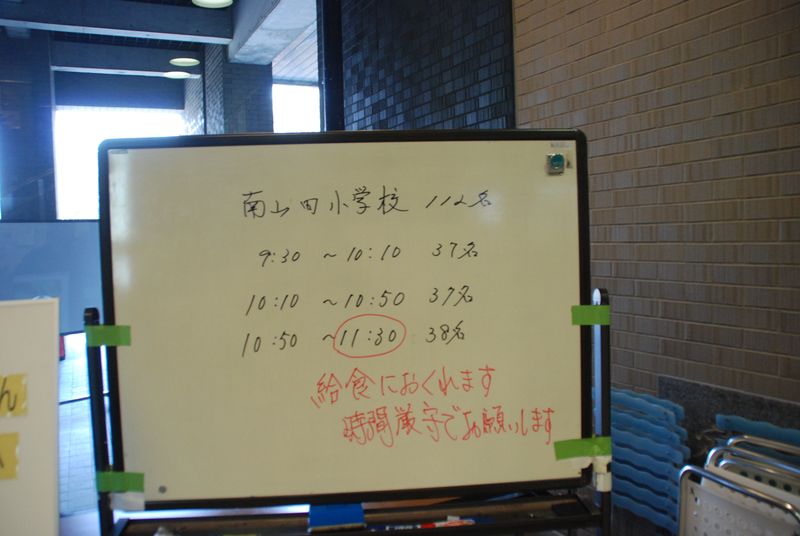 南山田小学校 112名
9:30 ～ 10:10 37名
10:10 ～ 10:50 37名
10:50 ～ 11:30 38名
給食におくれます
時間厳守でお願いします
ん